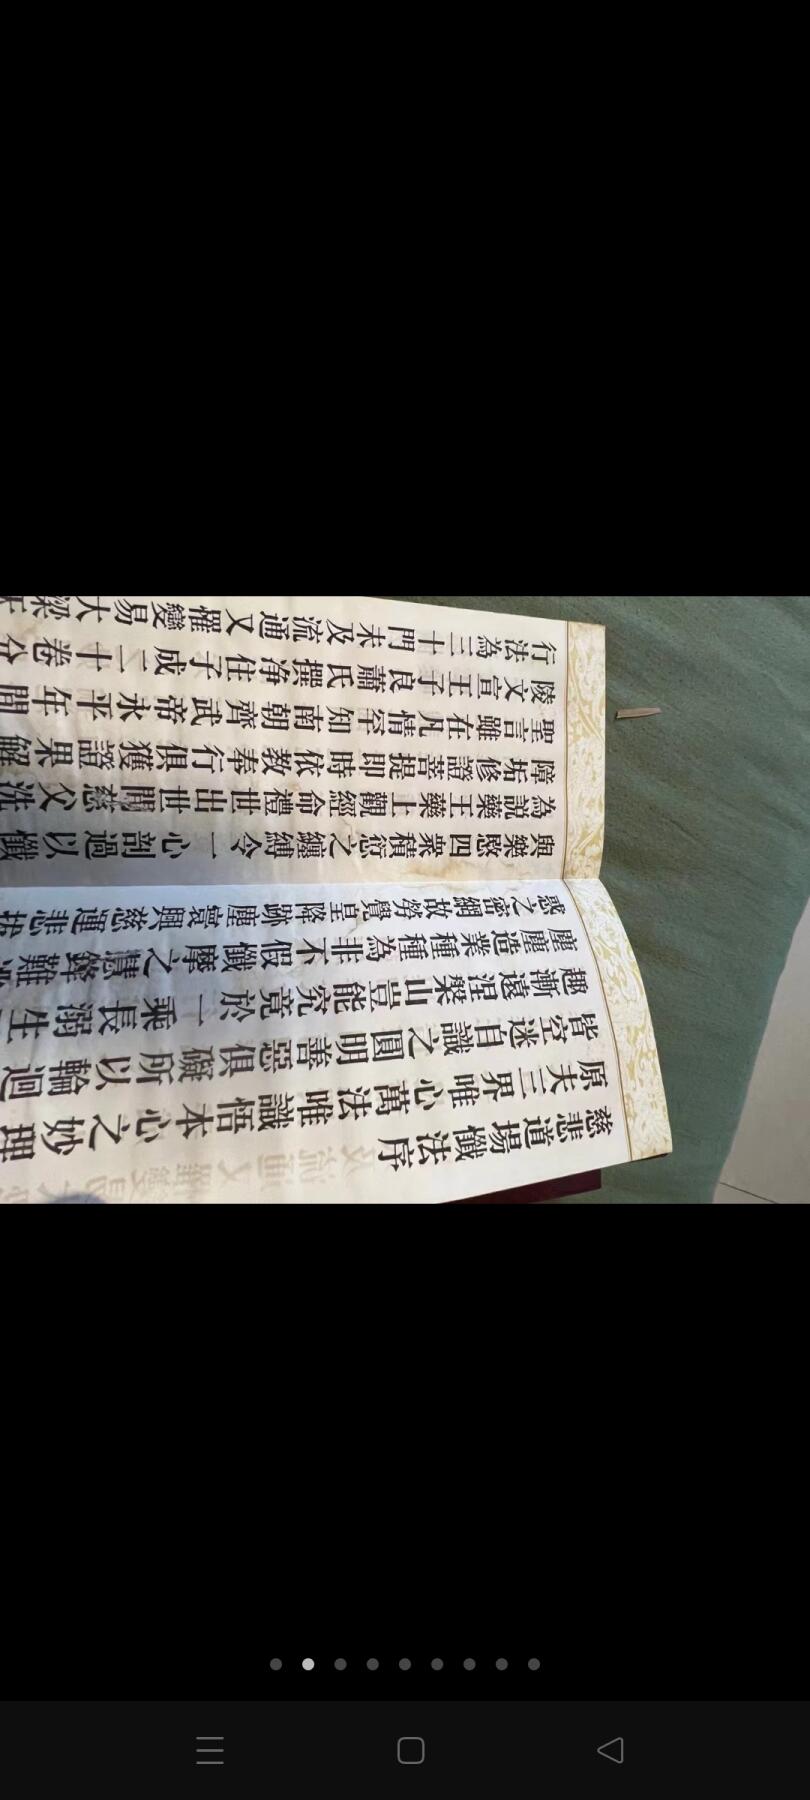 慈悲道場懺法序
原夫三界唯心萬法唯識悟本心之妙理
皆空迷自識之圓明善惡俱礙所以輪迴
趣漸遠涅槃山豈能究竟於一乘長溺生
塵塵造業種種為非不假懺摩之慧鋒難
惑之密網故勞覺皇降跡塵寰興慈運悲拔
與樂愍四衆積愆之纏縛令一心剖過以懺
為說藥王藥上觀經命禮世出世間慈父洗
障垢修證菩提即時依教奉行俱獲證果解
聖言雖在凡情罕知南朝齊武帝永平年間
陵文宣王子良蕭氏撰净住子成二十卷分
行法為三十門未及流通又罹變易大梁天